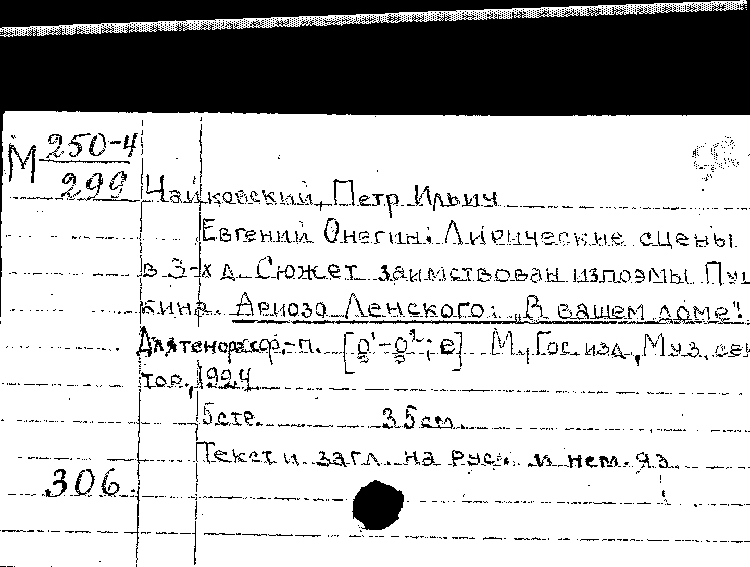 М 250-4
299
Чайковский, Петр Ильич
Евгений Онегин: Лирические сцены
в 3-х д. Сюжет заимствован из поэмы Пуш
кина. Ариозо Ленского: "В вашем доме".
Для тенора с ф.-п. [ М., Гос. изд., Муз. сек
тор, 1924
5 стр. 35 см.
Текст и загл. на русск. и нем. яз.
306.